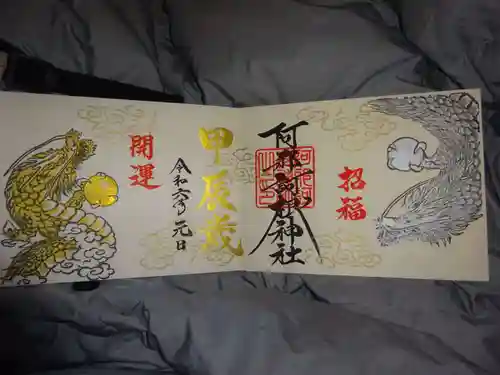 招福
阿邪訶根神社
甲辰歳
令和六年元日
開運